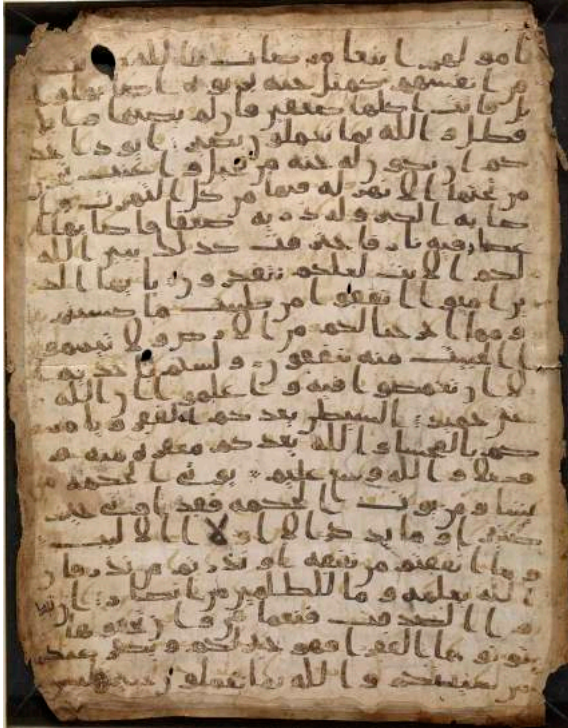 امولهم ابتغا مرضات الله وتثبيتا
من انفسهم كمثل جنة بربوة اصابها وا
بل فاتت اكلها ضعفين فان لم يصبها وابل
فطل والله بما تعملون بصير ايود احد
كم ان تكون له جنة من نخيل واعنب تجري
من تحتها الانهر له فيها من كل الثمرت وا
صابه الكبر وله ذرية ضعفا فاصابها ا
عصار فيه نار فاحترقت كذلك يبين الله
لكم الايت لعلكم تتفكرون يايها الذ
ين امنوا انفقوا من طيبت ما كسبتم
ومما اخرجنا لكم من الارض ولا تيمموا
الخبيث منه تنفقون ولستم باخذيه ا
لا ان تغمضوا فيه واعلموا ان الله
غني حميد الشيطن يعدكم الفقر ويامر
كم بالفحشا والله يعدكم مغفرة منه و
فضلا والله وسع عليم يوتي الحكمة من
يشا ومن يوت الحكمة فقد اوتي خيرا
كثيرا وما يذكر الا اولا الالبب
وما انفقتم من نفقة او نذرتم من نذر فان
الله يعلمه وما للظلمين من انصار ان تبد
وا الصدقت فنعما هي وان تخفوها
وتوتوها الفقرا فهو خير لكم ويكفر عنكم
من سييتكم والله بما تعملون خبير ليس